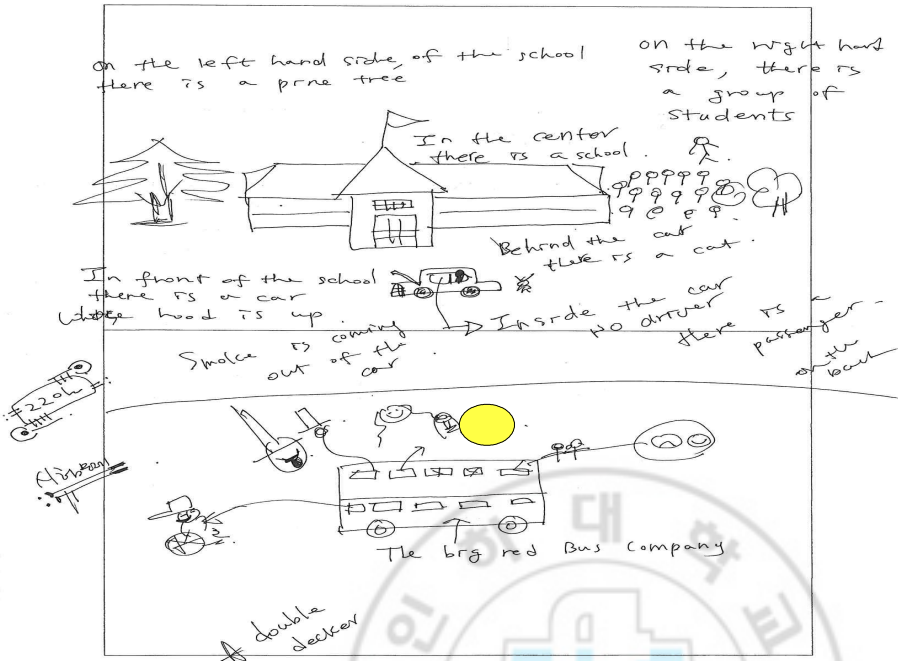 on the left hand side, of the school
there is a pine tree
on the right hand
side, there is
a group of
students
In the center
there is a school.
Behind the car
there is a cat.
In front of the school
there is a car
whose hood is up.
Inside the car
No driver
there is a
passenger
on the
back
Smoke is coming
out of the
car
220h
The big red Bus Company
A double
decker
인하대학교